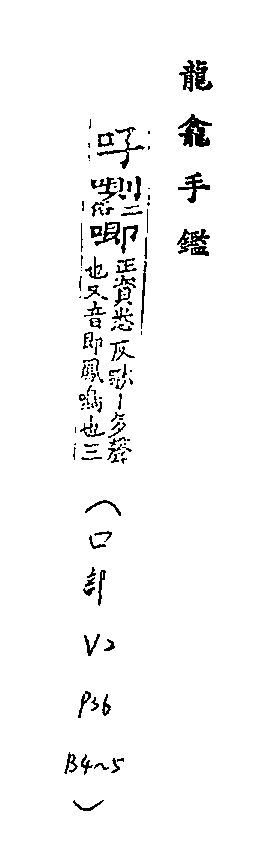 龍龕手鑑
唧正資悉反啾丨多聲
也又音即鳳鳴也三
(口部
V2
P36
B4~5
)